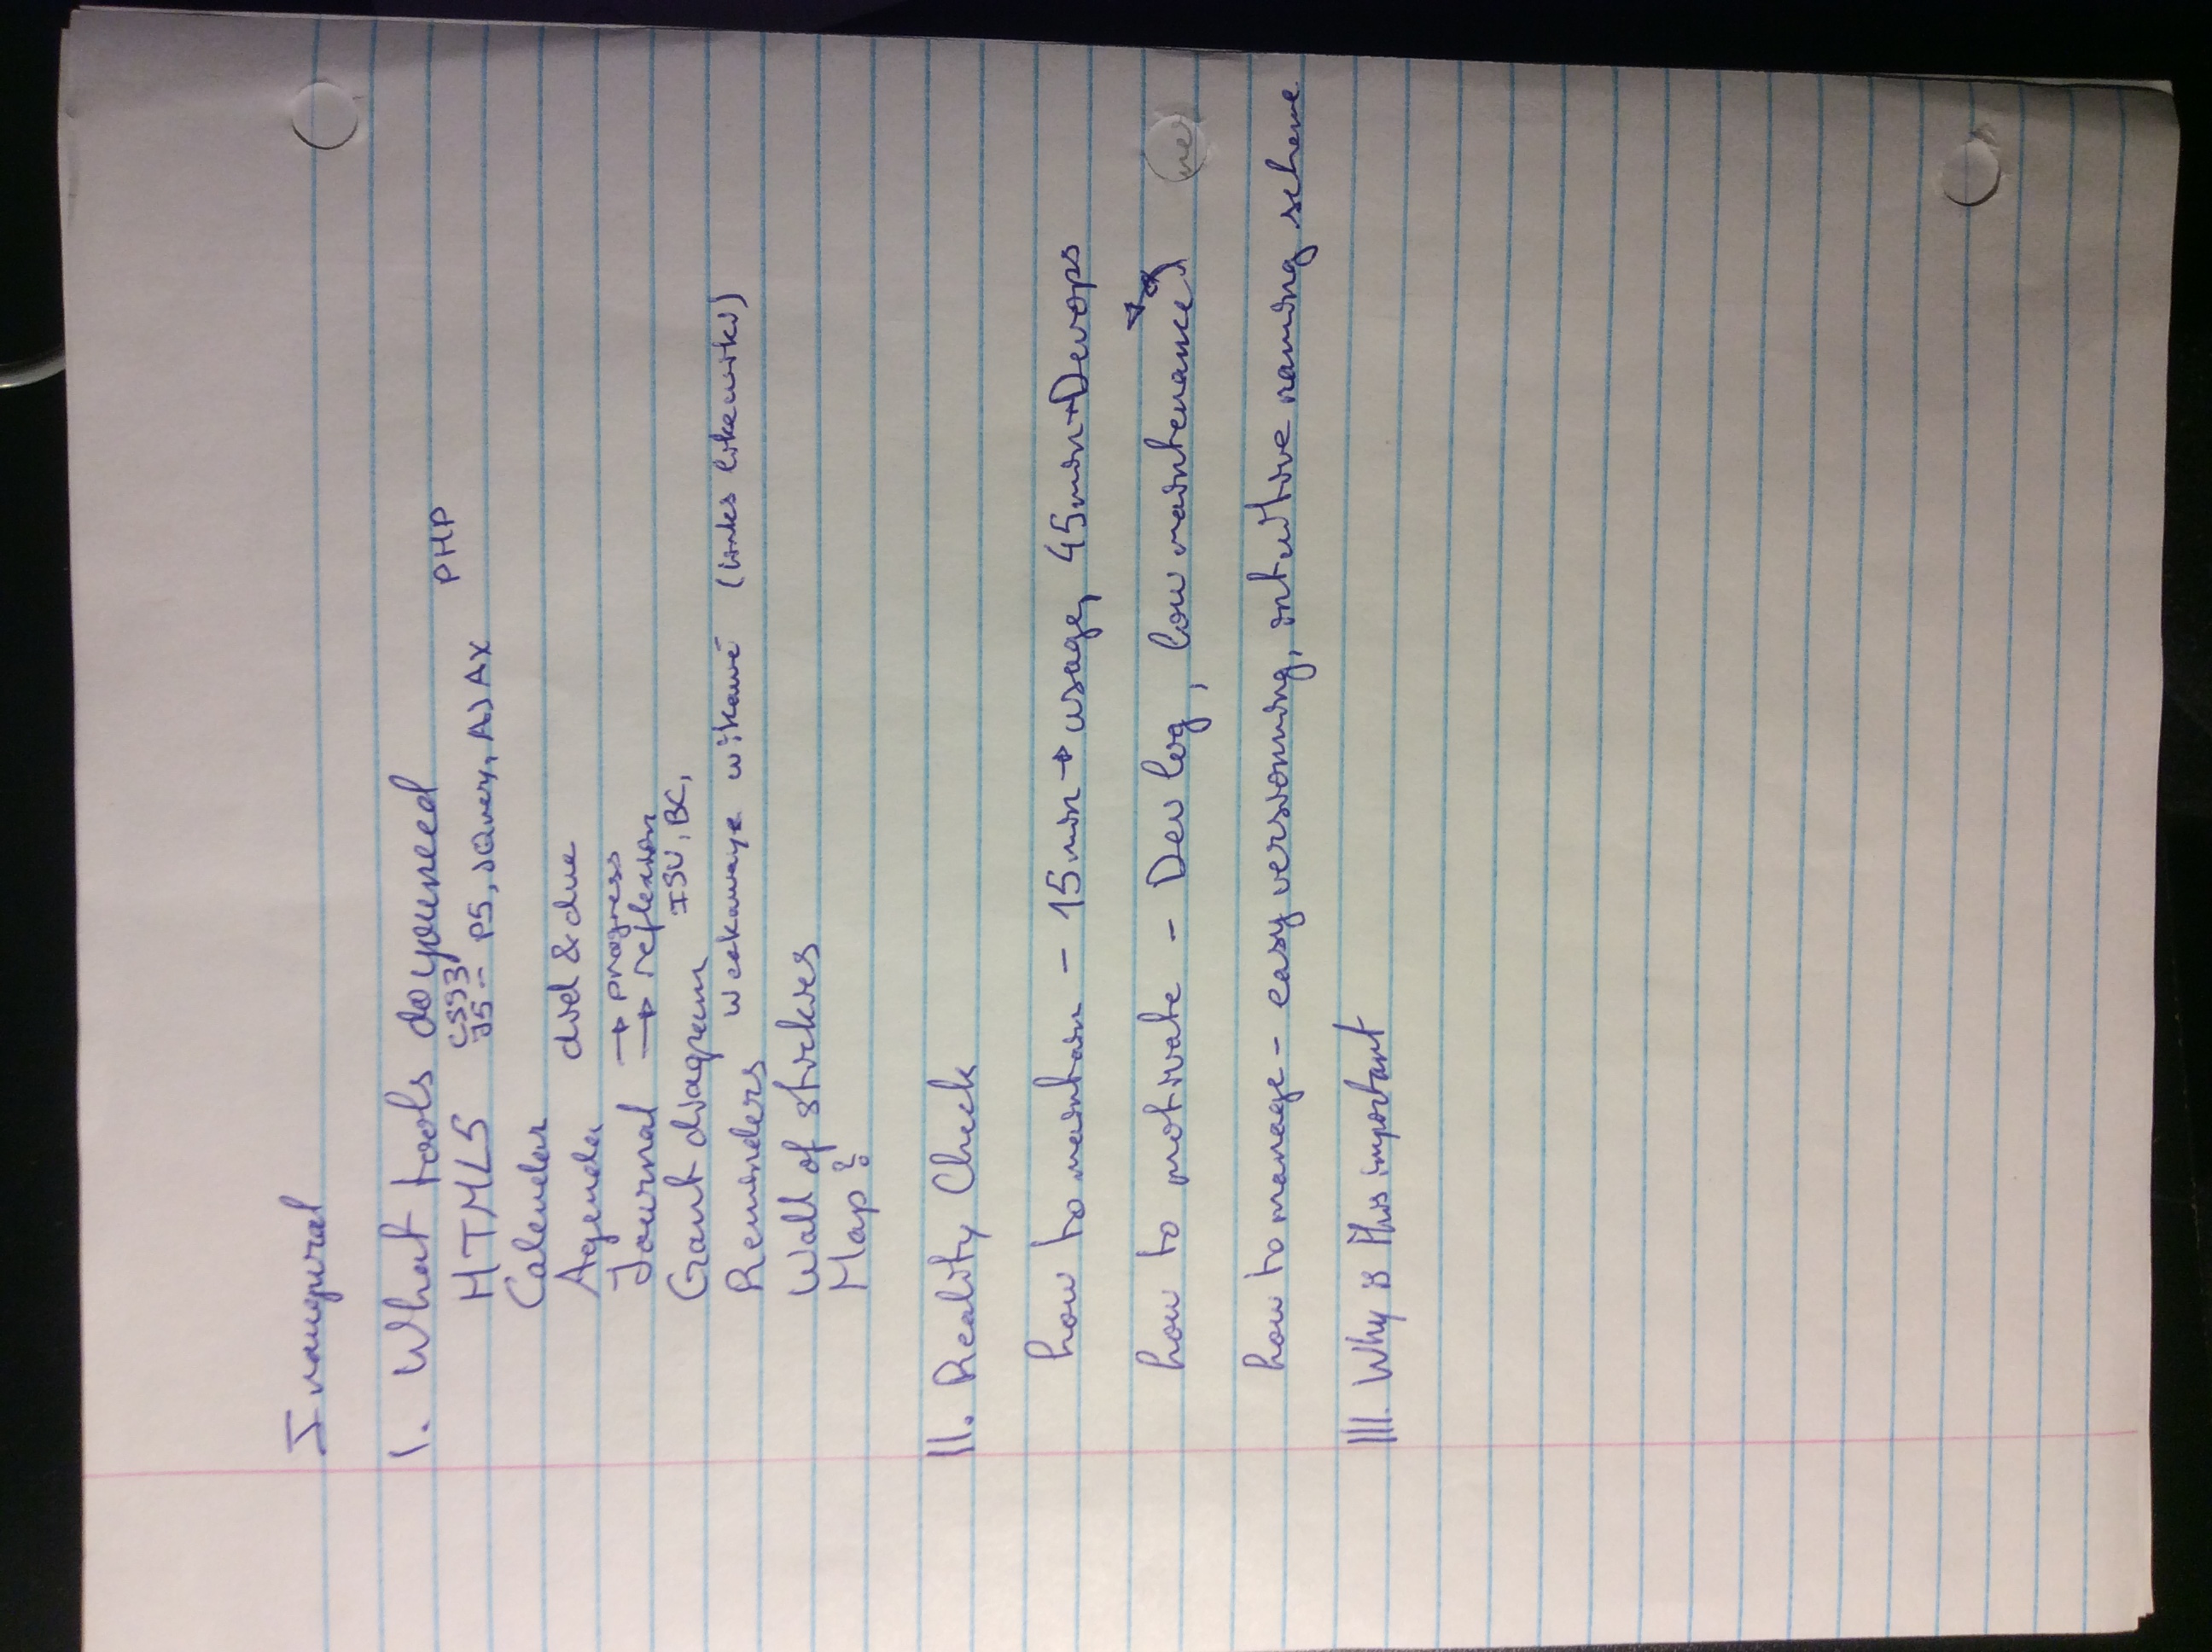 Inaugural
I. What tools do you need
HTML5 CSS3 PHP
JS - P5, JQuery, AJAX
Calendar
Agenda did & due
Journal → progress
→ reflexion
Gant diagram ISU, BC,
Reminders (links like wiki)
Wall of stickies
Map?
II. Reality Check
how to maintain - 15min → usage, 45min → Devops
how to motivate - Dev log, low maintenance
how to manage - easy versionning, intuitive naming scheme
III. Why is this important